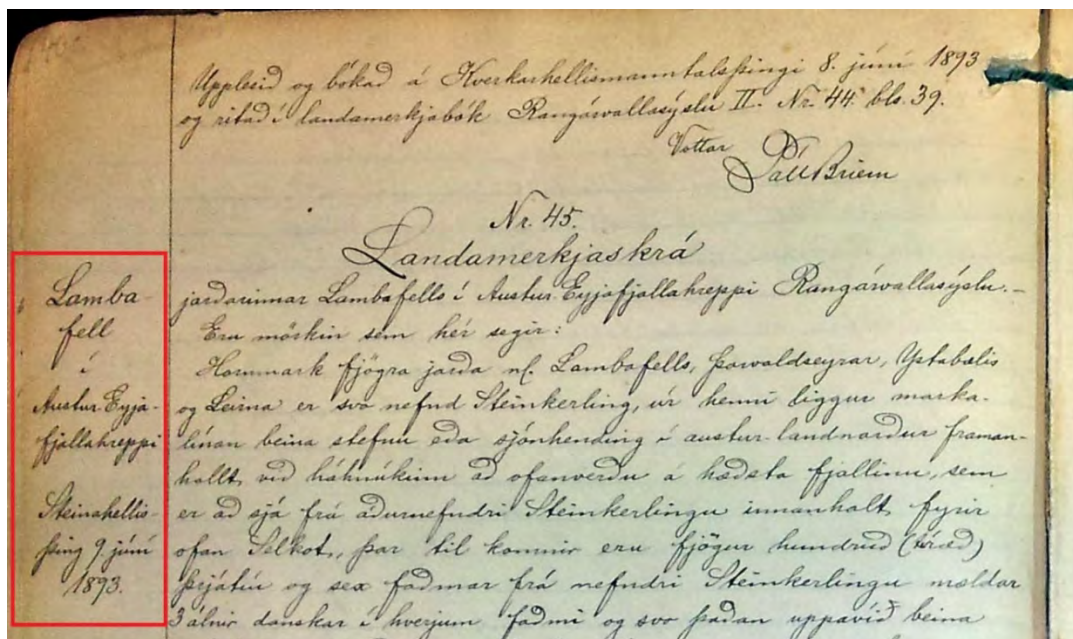 Upplesið og bókað á Kverkarhellismanntalsþingi 8. júní 1893
og ritað í landamerkjabók Rangárvallasýslu II. Nr. 44. bls. 39.
Vottar
Páll Briem
Nr. 45.
Landamerkjaskrá
Lamba-
fell
í
Austur Eyja-
fjallahreppi
Steinahellis-
þing 9. júní
1893.
jarðarinnar Lambafells í Austur-Eyjafjallahreppi Rangárvallasýslu.-
Eru mörkin sem hér segir:
Hornmark fjögra jarða nf. Lambafells, Þorvaldseyrar, Ystabælis
og Leirna er svo nefnd Steinkerling, úr henni liggur marka-
línan beina stefnu eða sjónhending í austur-landnorður framan-
hallt við háhnúkinn að ofanverðu á hæðsta fjallinu, sem
er að sjá frá áðurnefndri Steinkerlingu innanhalt fyrir
ofan Selkot, þar til komnir eru fjögur hundruð (tíræð)
þrjátíu og sex faðmar frá nefndri Steinkerlingu mældar
3 álnir danskar í hverjum faðmi og svo þaðan uppávið beina